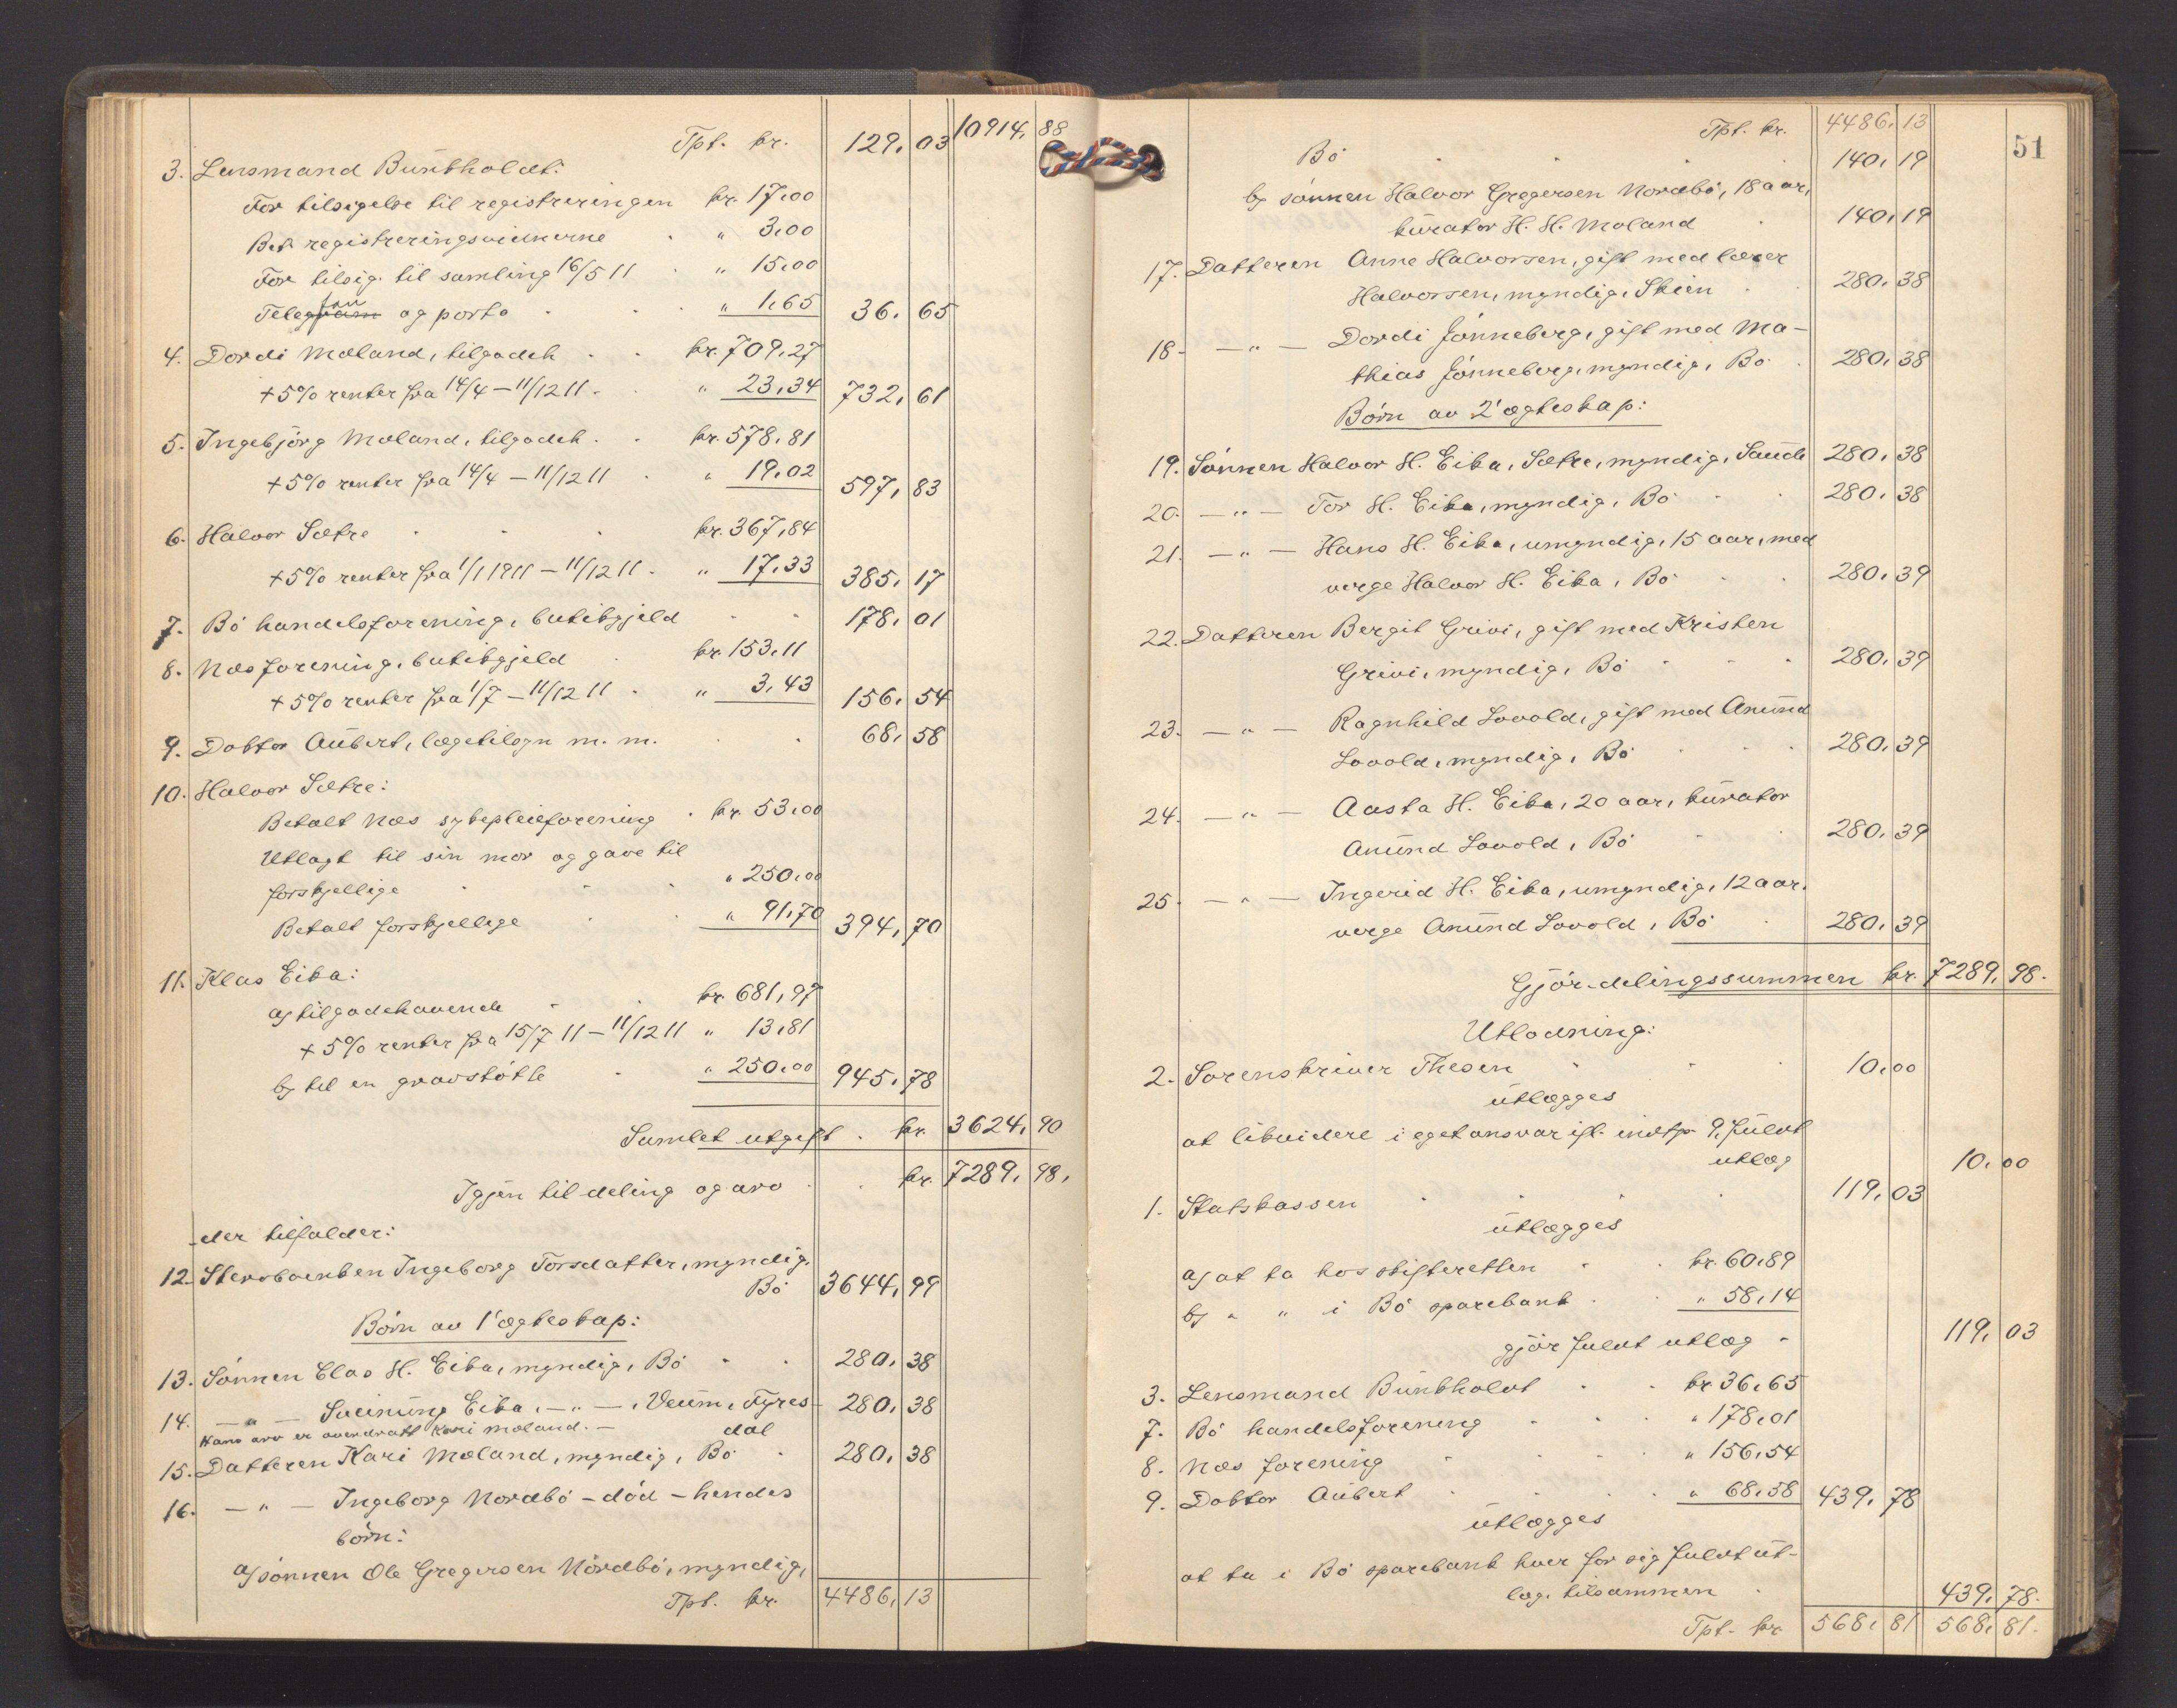 Tpt. kr. 129,03 10914,88
3. Lensmand Bunkholdt:
For tilsigelse til registreringen kr. 17,00
Bet. registreringsvidnerne " 3,00
For tilsig. til samling 16/5 11 " 15,00
Telegram fon og porto " 1,65 36,65
4. Dordi Moland, tilgodeh. kr. 709,27
+ 5% renter fra 14/4 – 11/12 11. " 23,34 732,61
5. Ingebjörg Moland, tilgodeh. kr. 578,81
+ 5% renter fra 14/4 – 11/12 11 " 19,02 597,83
6. Halvor Sætre kr. 367,84
+ 5% renter fra 1/1 1911 – 11/12 11. " 17,33 385,17
7. Bö handelsforening, butikgjeld 178,01
8. Næs forening, butikgjeld kr. 153,11
+ 5% renter fra 1/7 – 11/12 11 " 3,43 156,54
9. Doktor Aubert, lægetilsyn m. m. 68,58
10. Halvor Sætre:
Betalt Næs sykepleieforening kr. 53,00
Utlagt til sin mor og gave til
forskjellige " 250,00
Betalt forskjellige " 91,70 394,70
11. Klas Eika:
a) tilgodehavende kr. 681,97
+ 5% renter fra 15/7 11 – 11/12 11 " 13,81
b) til en gravstötte " 250,00 945,78
Samlet utgift. kr. 3624,90
Igjen til deling og arv kr. 7289,98.
der tilfalder:
12. Stervboenken Ingeborg Torsdatter, myndig.
Bö 3644,99
Börn av 1' ægteskap:
13. Sönnen Clas H. Eika, myndig, Bö 280,38
14. — " — Sveinung Eika, — " —, Veum, Fyres- 280,38
Hans arv er overdratt Kari Moland. — dal
15. Datteren Kari Moland, myndig, Bö 280,38
16. — " — Ingeborg Nordbö – död – hendes
börn:
a) sönnen Ole Gregersen Nordbö, myndig,
Tpt. kr. 4486,13
51
Tpt. kr. 4486,13
Bö 140,19
b) sönnen Halvor Gregersen Nordbö, 18 aar,
kurator H. H. Moland 140,19
17. Datteren Anne Halvorsen, gift med lærer
Halvorsen, myndig, Skien 280,38
18. — " — Dordi Jönneberg, gift med Ma-
thias Jönneberg, myndig, Bö 280,38
Börn av 2' ægteskap:
19. Sönnen Halvor H. Eika, Sætre, myndig, Saude 280,38
20. — " — Tor H. Eika, myndig, Bö 280,38
21. — " — Hans H. Eika, umyndig, 15 aar, med
verge Halvor H. Eika, Bö 280,39
22. Datteren Bergit Grivi, gift med Kristen
Grivi, myndig, Bö 280,39
23. — " — Ragnhild Lovold, gift med Anund
Lovold, myndig, Bö 280,39
24. — " — Aasta H. Eika, 20 aar, kurator
Anund Lovold, Bö 280,39
25. — " — Ingerid H. Eika, umyndig, 12 aar.
verge Anund Lovold, Bö 280,39
Gjör delingssummen kr. 7289,98.
Utlodning:
2. Sorenskriver Thesen 10,00
utlægges
at likvidere i eget ansvar ift. indtp. 9. Fuldt
utlæg 10,00
1. Statskassen 119,03
utlægges
a) at ta hos skifteretten kr. 60,89
b) " " i Bö sparebank " 58,14
gjör fuldt utlæg 119,03
3. Lensmand Bunkholdt kr. 36,65
7. Bö handelsforening " 178,01
8. Næs forening " 156,54
9. Doktor Aubert " 68,58 439,78
utlægges
at ta i Bö sparebank hver for sig fuldt ut-
læg, tilsammen 439,78.
Tpt. kr. 568,81 568,81.